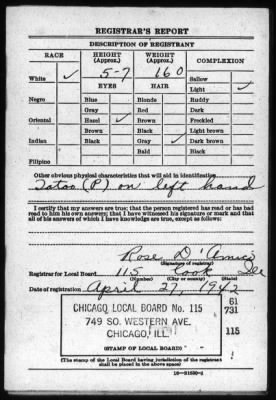 REGISTRAR'S REPORT
DESCRIPTION OF REGISTRANT
RACE HEIGHT (Approx.) WEIGHT (Approx.) COMPLEXION
5-7 160
White ✓ EYES HAIR Sallow
Light ✓
Negro Blue Blonde Ruddy
Gray Red Dark
Oriental Hazel ✓ Brown Freckled
Brown Black Light brown
Indian Black Gray ✓ Dark brown
Bald Black
Filipino
Other obvious physical characteristics that will aid in identification
Tatoo (P) on left hand
I certify that my answers are true; that the person registered has read or has had
read to him his own answers; that I have witnessed his signature or mark and that
all of his answers of which I have knowledge are true, except as follows:
Rose D'Amico
(Signature of registrar)
Registrar for Local Board 115 Cook Ill
(Number) (City or county) (State)
Date of registration April 27, 1942
CHICAGO LOCAL BOARD No. 115
749 SO. WESTERN AVE.
CHICAGO, ILL.
61
731
115
(STAMP OF LOCAL BOARD)
(The stamp of the Local Board having jurisdiction of the registrant
shall be placed in the above space)
16—21630-2